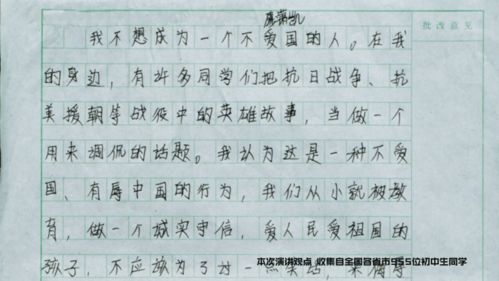 批改意见
我不想成为一个不爱国的人。在我
的身边，有许多同学们把抗日战争、抗
美援朝等战役中的英雄故事，当做一个
用来调侃的话题。我认为这是一种不爱
国、有辱中国的行为，我们从小就被教
育，做一个诚实守信，爱人民爱祖国的
孩子，不应该为了过一点
本次演讲观点 收集自全国各省市955位初中生同学